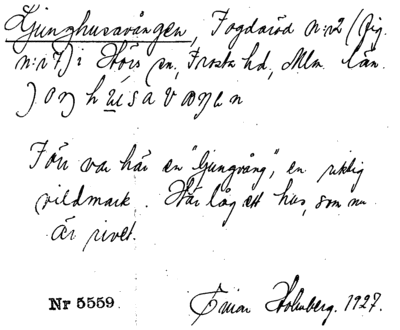 Ljunghusavången, Fogdaröd n:r 2 (fig.
n:r 7) i Hörs sn, Frosta hd, Mlm. län.
Förr var här en "ljungvång", en riktig
vildmark. Här låg ett hus, som nu
är rivet.
Nr 5559. Einar Holmberg. 1927.